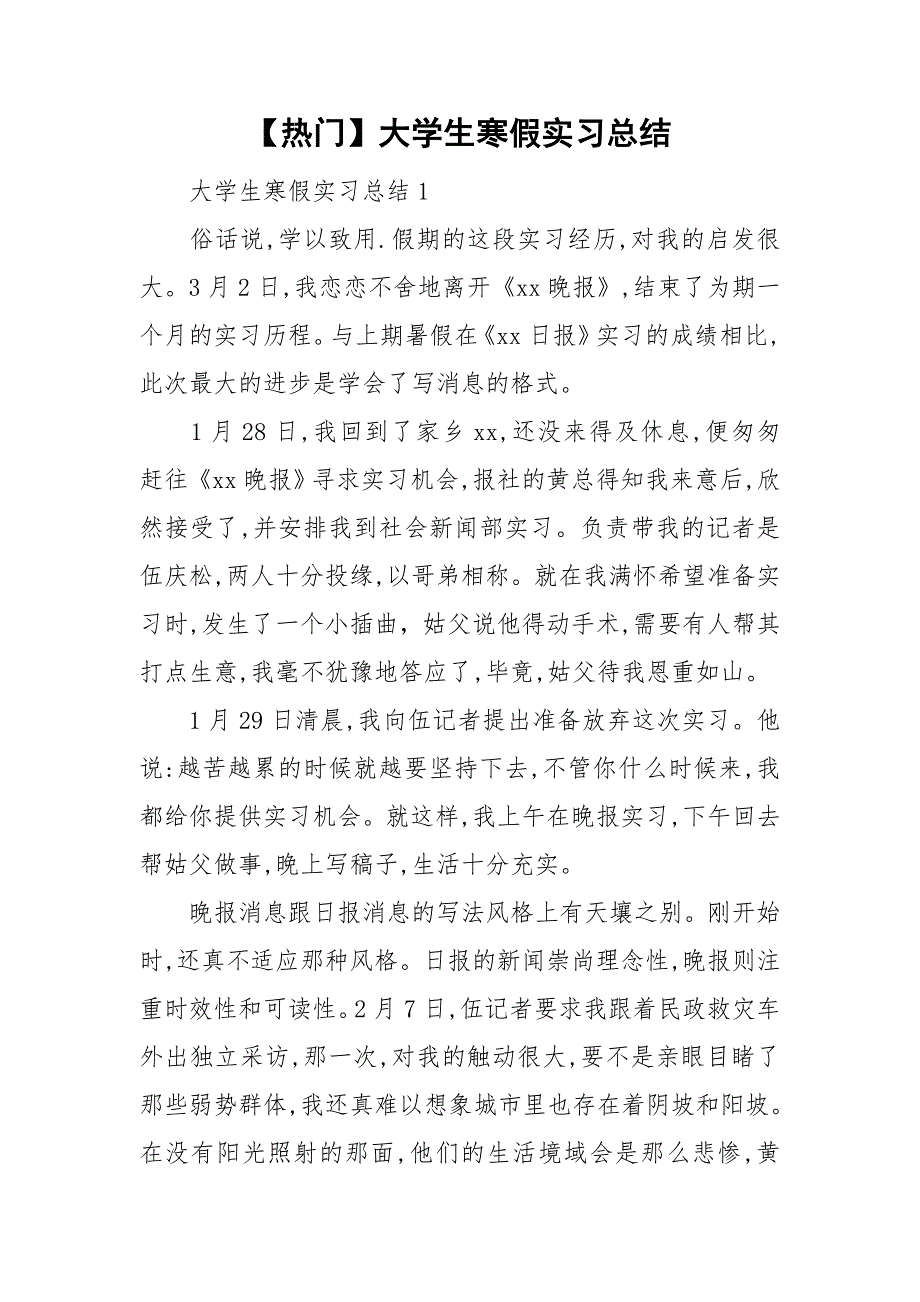 【热门】大学生寒假实习总结
大学生寒假实习总结 1
俗话说,学以致用.假期的这段实习经历,对我的启发很
大。3 月 2 日,我恋恋不舍地离开《xx 晚报》,结束了为期一
个月的实习历程。与上期暑假在《xx 日报》实习的成绩相比,
此次最大的进步是学会了写消息的格式。
1 月 28 日,我回到了家乡 xx,还没来得及休息,便匆匆
赶往《xx 晚报》寻求实习机会,报社的黄总得知我来意后,欣
然接受了,并安排我到社会新闻部实习。负责带我的记者是
伍庆松,两人十分投缘,以哥弟相称。就在我满怀希望准备实
习时,发生了一个小插曲，姑父说他得动手术,需要有人帮其
打点生意,我毫不犹豫地答应了,毕竟,姑父待我恩重如山。
1 月 29 日清晨,我向伍记者提出准备放弃这次实习。他
说:越苦越累的时候就越要坚持下去,不管你什么时候来,我
都给你提供实习机会。就这样,我上午在晚报实习,下午回去
帮姑父做事,晚上写稿子,生活十分充实。
晚报消息跟日报消息的写法风格上有天壤之别。刚开始
时,还真不适应那种风格。日报的新闻崇尚理念性,晚报则注
重时效性和可读性。2 月 7 日,伍记者要求我跟着民政救灾车
外出独立采访,那一次,对我的触动很大,要不是亲眼目睹了
那些弱势群体,我还真难以想象城市里也存在着阴坡和阳坡。
在没有阳光照射的那面,他们的生活境域会是那么悲惨,黄